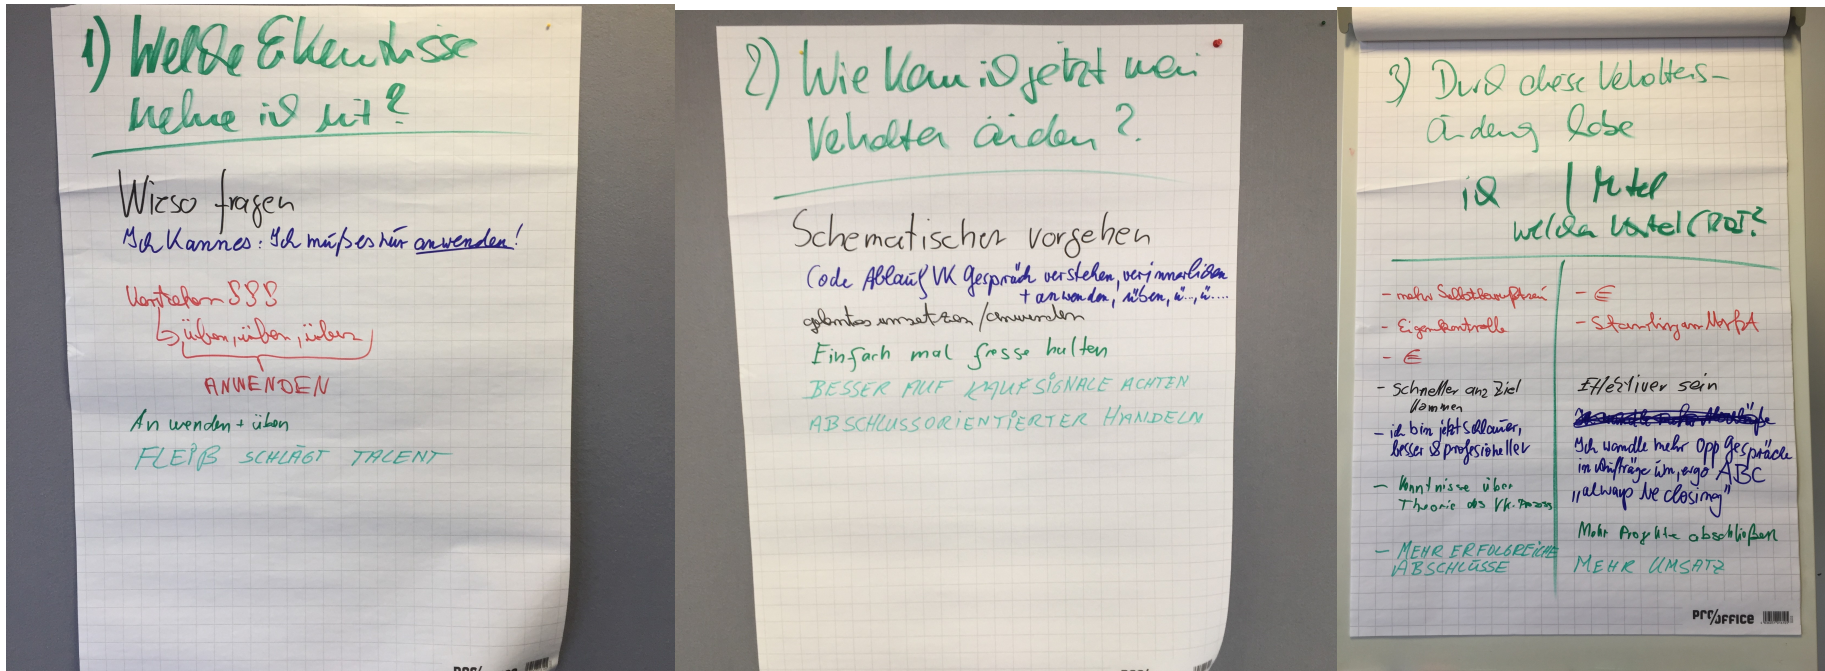 1) Welche Erkenntnisse
nehme ich mit?
Wieso fragen
Ich kann es: Ich muß es nur anwenden!
üben, üben, üben
ANWENDEN
Anwenden + üben
FLEIß SCHLÄGT TALENT
2) Wie kann ich jetzt mein
Verhalten ändern?
Schematischer vorgehen
Code Ablauf VK Gespräch verstehen, verinnerlichen
+ anwenden, üben, ü..., ü....
gelerntes umsetzen / anwenden
Einfach mal fresse halten
BESSER AUF KAUFSIGNALE ACHTEN
ABSCHLUSSORIENTIERTER HANDELN
3) Durch diese Verhaltens-
änderung habe
ich | Mitel
welchen Vorteil (ROI?
- mehr Selbstbewußtsein
- Eigenkontrolle
- €
- schneller ans Ziel
kommen
- ich bin jetzt schlauer,
besser & profesioneller
- Kenntnisse über
Theorie des VK-Prozess
- MEHR ERFOLGREICHE
ABSCHLÜSSE
- €
- Standing am Markt
Effektiver sein
Ich wandle mehr Opp Gespräche
in Aufträge um, ergo ABC
„always be closing"
Mehr Projekte abschließen
MEHR UMSATZ
pro/office